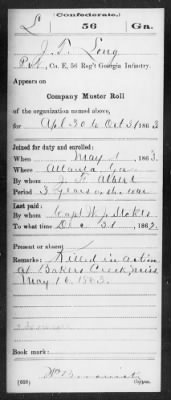 (Confederate.)
L 56 Ga.
J. T. Long
Pvt, Co. E, 56 Reg't Georgia Infantry.
Appears on
Company Muster Roll
of the organization named above,
for Apl 30 to Oct 31, 1863.
Joined for duty and enrolled:
When May 1, 1863.
Where Atlanta Ga
By whom J. F. Albert
Period 3 years or the war
Last paid:
By whom Capt W. J. Stokes
To what time Dec 31, 1862.
Present or absent
Remarks: Killed in action
at Bakers Creek, Miss
May 16, 1863.
Copyist.